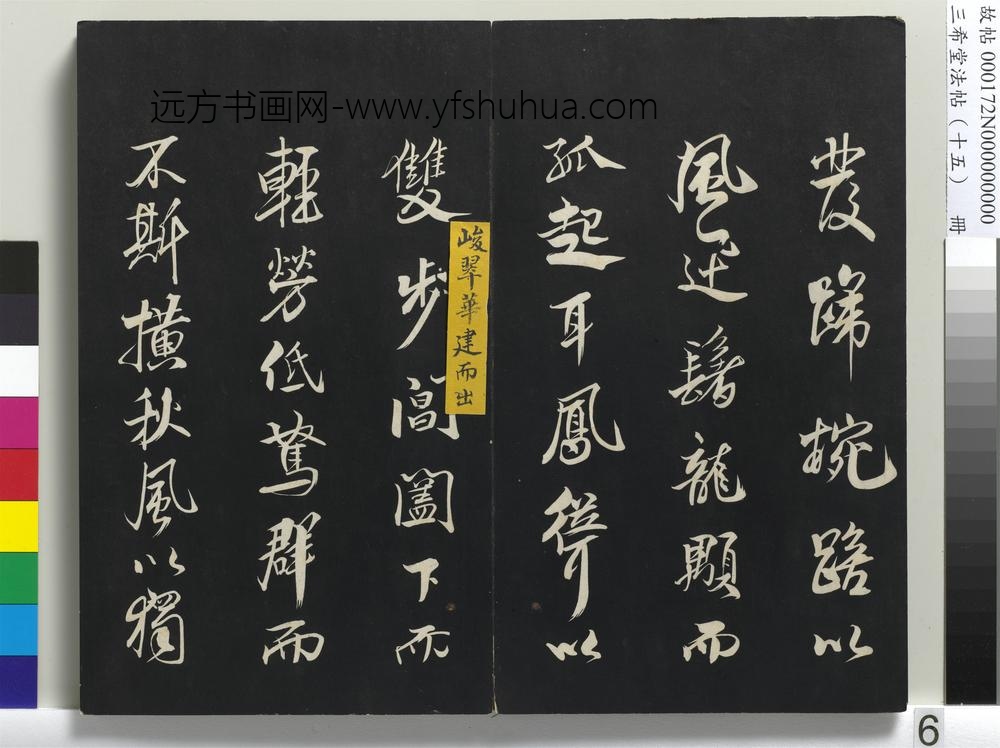 故帖 000172N000000000
三希堂法帖（十五） 冊
远方书画网-www.yfshuhua.com
發蹄椀踣以
風迅鬐龍顒而
孤起耳鳳聳以
雙步閶闔下而
峻翠華建而出
輕勞低駑群而
不斯橫秋風以獨
6